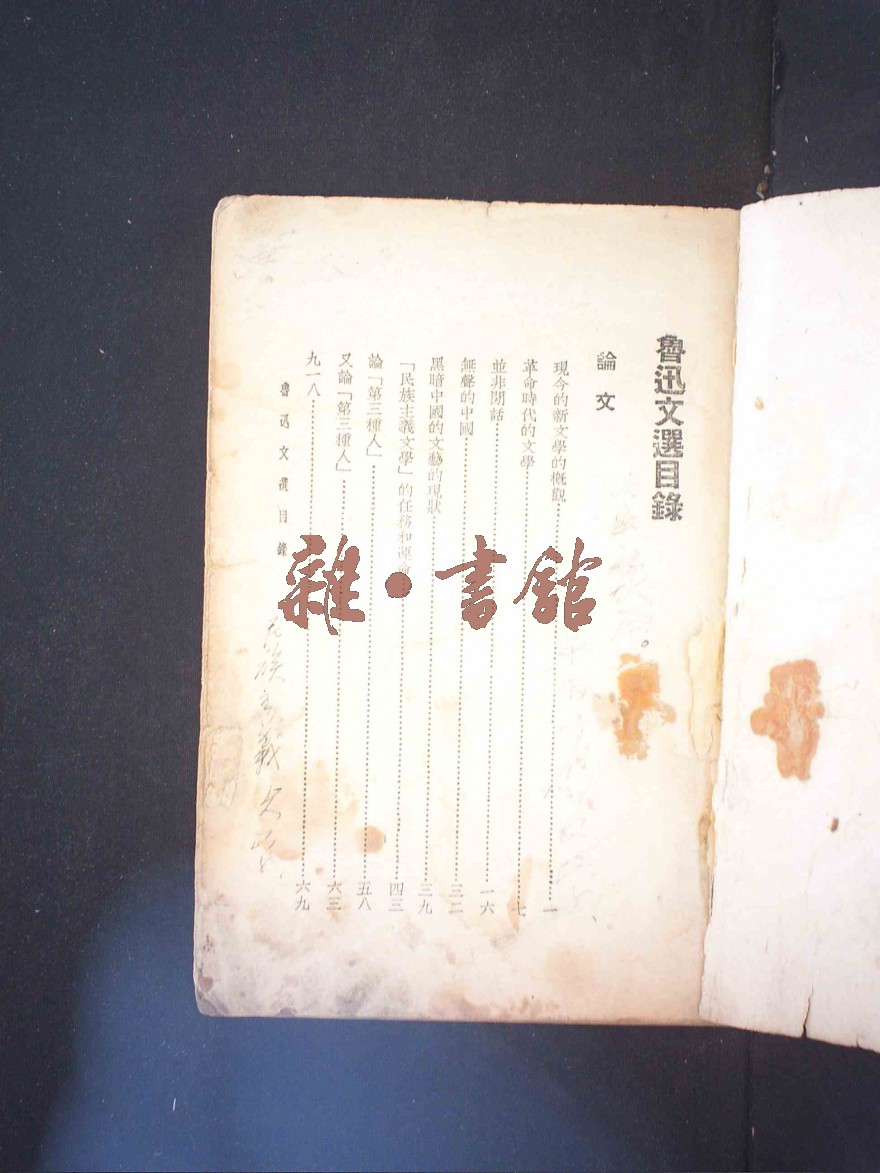 魯迅文選目錄
論文
現今的新文學的概觀……一
革命時代的文學……七
並非閒話……一六
無聲的中國……三二
黑暗中國的文藝的現狀……三九
「民族主義文學」的任務和運命……四三
論「第三種人」……五八
又論「第三種人」……六三
九一八……六九
魯迅文選目錄
民族主義文學
雜·書館